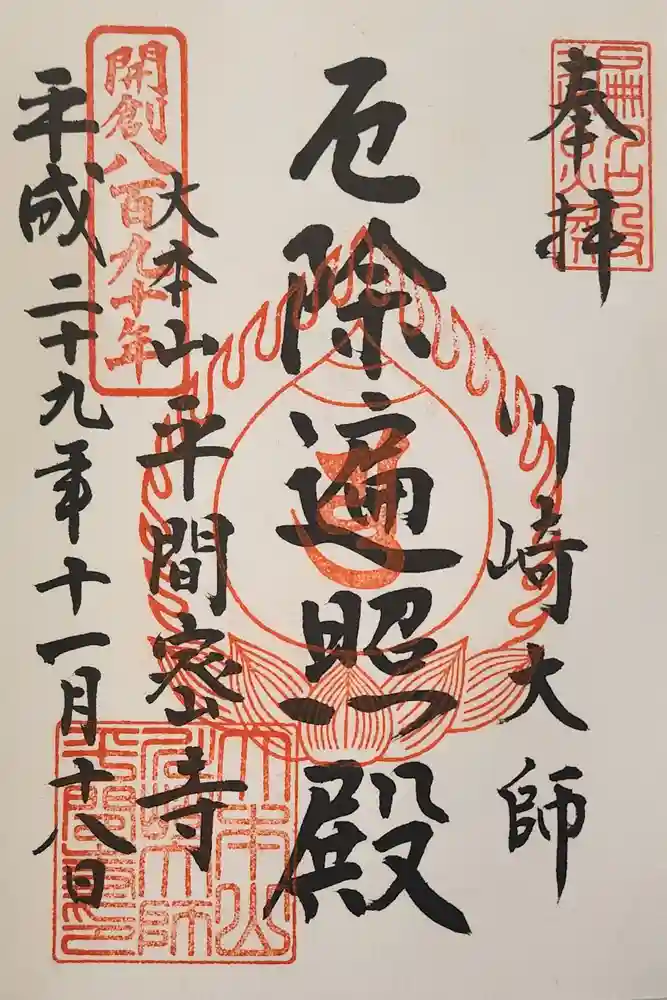 奉拝
川崎大師
厄除遍照殿
大本山平間密寺
開創八百九十年
平成二十九年十一月十八日